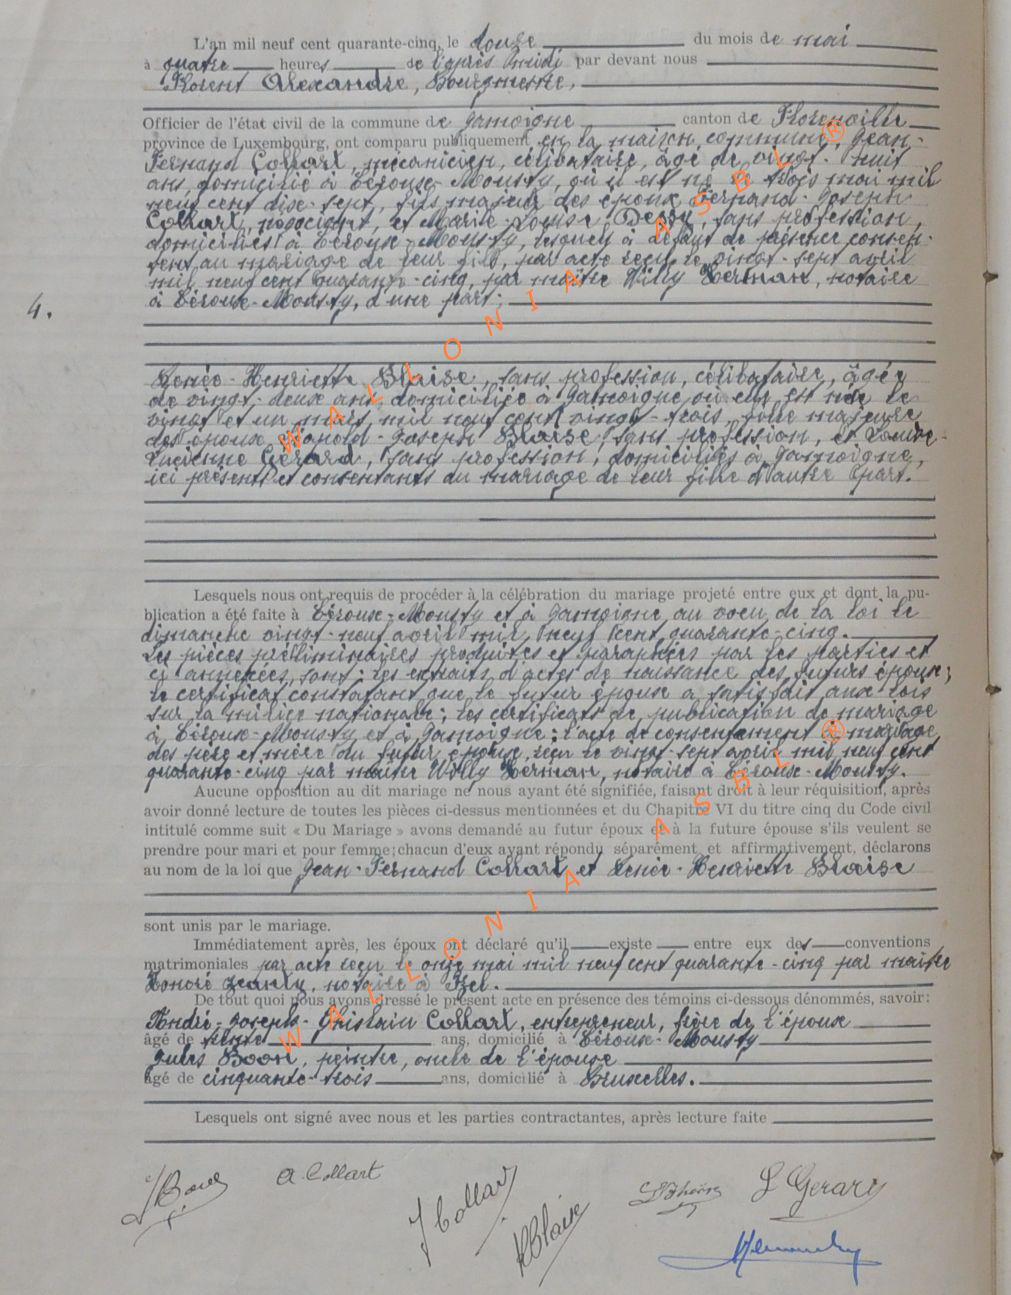 L'an mil neuf cent quarante-cinq, le douze du mois de mai
à quatre heures de l'après midi par devant nous
Florent Alexandre, Bourgmestre,
Officier de l'état civil de la commune de Jamoigne canton de Florenville
province de Luxembourg, ont comparu publiquement en la maison commune, Jean-
Fernand Collart, mécanicien, célibataire, âgé de vingt-huit
ans, domicilié à Cérouse-Mousty, où il est né le trois mai mil
neuf cent dix-sept, fils majeur des époux Fernand-Joseph
Collart, négociant, et Marie-Louise Dessy, sans profession,
domiciliés à Cérouse-Mousty, lesquels à défaut de présence consen-
tent au mariage de leur fils, par acte reçu le vingt-sept avril
mil neuf cent quarante-cinq, par maître Willy Herman, notaire
à Cérouse-Mousty, d'une part;
4.
Renée-Henriette Blaise, sans profession, célibataire, âgée
de vingt-deux ans, domiciliée à Jamoigne où elle est née le
vingt et un mars mil neuf cent vingt-trois, fille majeure
des époux Léopold-Joseph Blaise, sans profession, et Louise-
Lucienne Gérard, sans profession, domiciliés à Jamoigne,
ici présents et consentants au mariage de leur fille d'autre part.
Lesquels nous ont requis de procéder à la célébration du mariage projeté entre eux et dont la pu-
blication a été faite à Cérouse-Mousty et à Jamoigne au voeu de la loi le
dimanche vingt-neuf avril mil neuf cent quarante-cinq.
Les pièces préliminaires produites et paraphées par les parties et
ci annexées, sont: les extraits d'actes de naissance des futurs époux;
le certificat constatant que le futur époux a satisfait aux lois
sur la milice nationale; les certificats de publication de mariage
à Cérouse-Mousty et à Jamoigne; l'acte de consentement mariage
des père et mère du futur époux, reçu le vingt-sept avril mil neuf cent
quarante-cinq par maître Willy Herman, notaire à Cérouse-Mousty.
Aucune opposition au dit mariage ne nous ayant été signifiée, faisant droit à leur réquisition, après
avoir donné lecture de toutes les pièces ci-dessus mentionnées et du Chapitre VI du titre cinq du Code civil
intitulé comme suit « Du Mariage » avons demandé au futur époux et à la future épouse s'ils veulent se
prendre pour mari et pour femme; chacun d'eux ayant répondu séparément et affirmativement, déclarons
au nom de la loi que Jean-Fernand Collart et Renée-Henriette Blaise
sont unis par le mariage.
Immédiatement après, les époux ont déclaré qu'il existe entre eux des conventions
matrimoniales par acte reçu le onze mai mil neuf cent quarante-cinq par maître
Honoré Jeanty, notaire à Izel.
De tout quoi nous avons dressé le présent acte en présence des témoins ci-dessous dénommés, savoir:
André-Joseph-Ghislain Collart, entrepreneur, frère de l'époux
âgé de trente ans, domicilié à Cérouse-Mousty
Jules Boon, peintre, oncle de l'épouse
âgé de cinquante-trois ans, domicilié à Bruxelles.
Lesquels ont signé avec nous et les parties contractantes, après lecture faite
J Boon A. Collart
J Collart
R Blaise
L Gérard
WALLONIA ASBL ®
WALLONIA ASBL ®